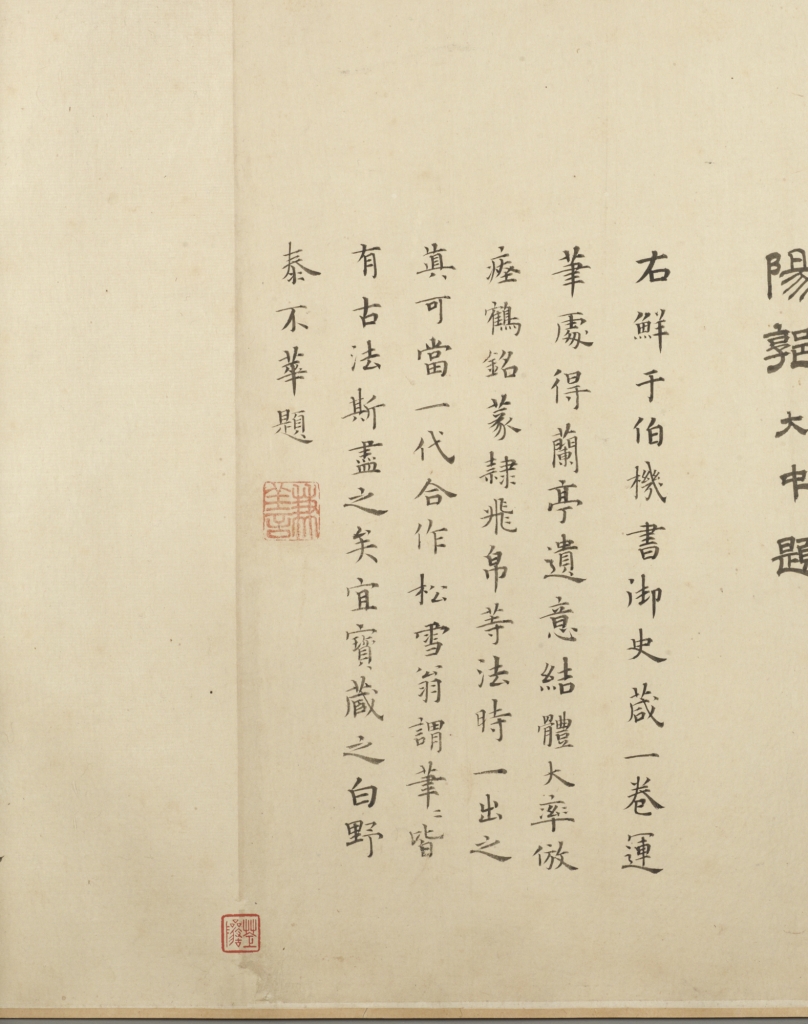 陽郭大中題
右鮮于伯機書御史箴一卷運
筆處得蘭亭遺意結體大率倣
瘞鶴銘篆隷飛帛等法時一出之
眞可當一代合作松雪翁謂筆〻皆
有古法斯盡之矣宜寶藏之白野
泰不華題
兼善